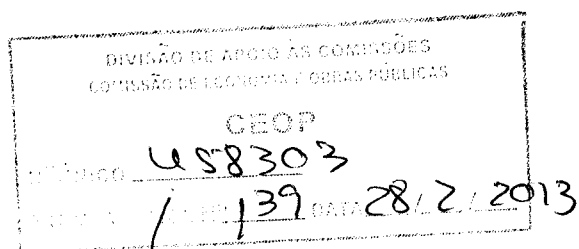 DIVISÃO DE APOIO ÀS COMISSÕES
COMISSÃO DE ECONOMIA E OBRAS PÚBLICAS
CEOP
458303
/ 139 DATA 28/2/2013